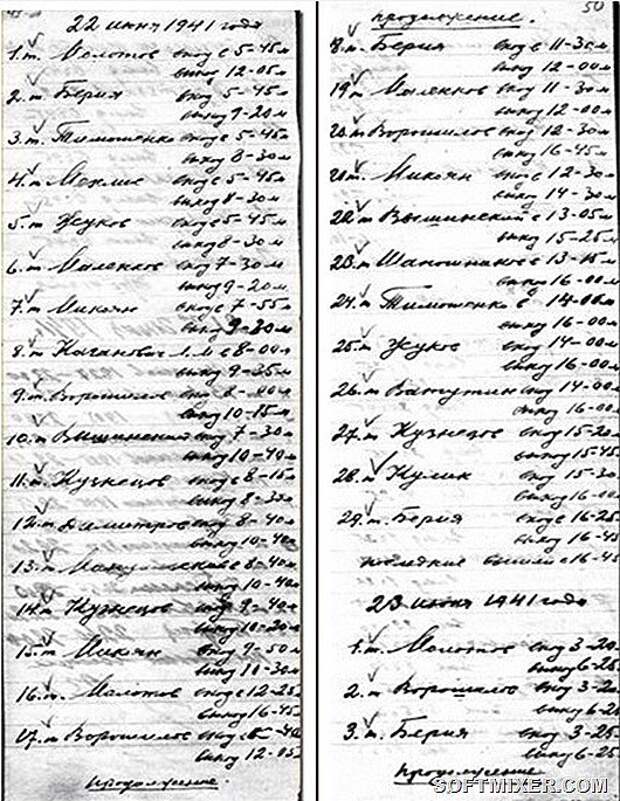 22 июня 1941 года
1. т. Молотов вход в 5-45 м
выход 12-05 м
2. т. Берия вход 5-45 м
выход 9-20 м
3. т. Тимошенко вход в 5-45 м
выход 8-30 м
4. т. Мехлис вход в 5-45 м
выход 8-30 м
5. т. Жуков вход в 5-45 м
выход 8-30 м
6. т. Маленков вход 7-30 м
выход 9-20 м
7. т. Микоян вход в 7-55 м
выход 9-30 м
8. т. Каганович Л.М. в 8-00 м
выход 9-35 м
9. т. Ворошилов вход 8-00 м
выход 10-15 м
10. т Вышинский вход 7-30 м
выход 10-40 м
11. т. Кузнецов вход в 8-15 м
выход 8-30 м
12. т. Димитров вход 8-40 м
выход 10-40 м
13. т. Мануильский в 8-40 м
выход 10-40 м
14. т. Кузнецов вход 9-40 м
выход 10-20 м
15. т. Микоян вход 9-50 м
выход 10-30 м
16. т. Молотов вход в 12-25 м
выход 16-45 м
17. т Ворошилов вход в -40
выход 12-05
продолжение.
50
продолжение.
8. т. Берия вход в 11-30 м
выход 12-00 м
19 т. Маленков вход 11-30
выход 12-00 м
20. т Ворошилов вход 12-30
выход 16-45 м
21 т. Микоян вход в 12-30
выход 14-30 м
22. т Вышинский в 13-05 м
выход 15-25 м
23. т Шапошников в 13-15 м
выход 16-00 м
24. т Тимошенко в 14-00 м
выход 16-00 м
25. т Жуков вход 14-00
выход 16-00 м
26. т Ватутин вход 14-00
выход 16-00 м
27. т Кузнецов вход 15-20
выход 15-45
28. т Кулик вход 15-30
выход 16-00
29. т. Берия вход в 16-25
выход 16-45
последние вышли в 16-45
23 июня 1941 года
1. т. Молотов вход 3-20
выход 6-25
2. т Ворошилов вход 3-20
выход 6-25
3. т. Берия вход 3-25
выход 6-25
продолжение
SOFTMIXER.COM